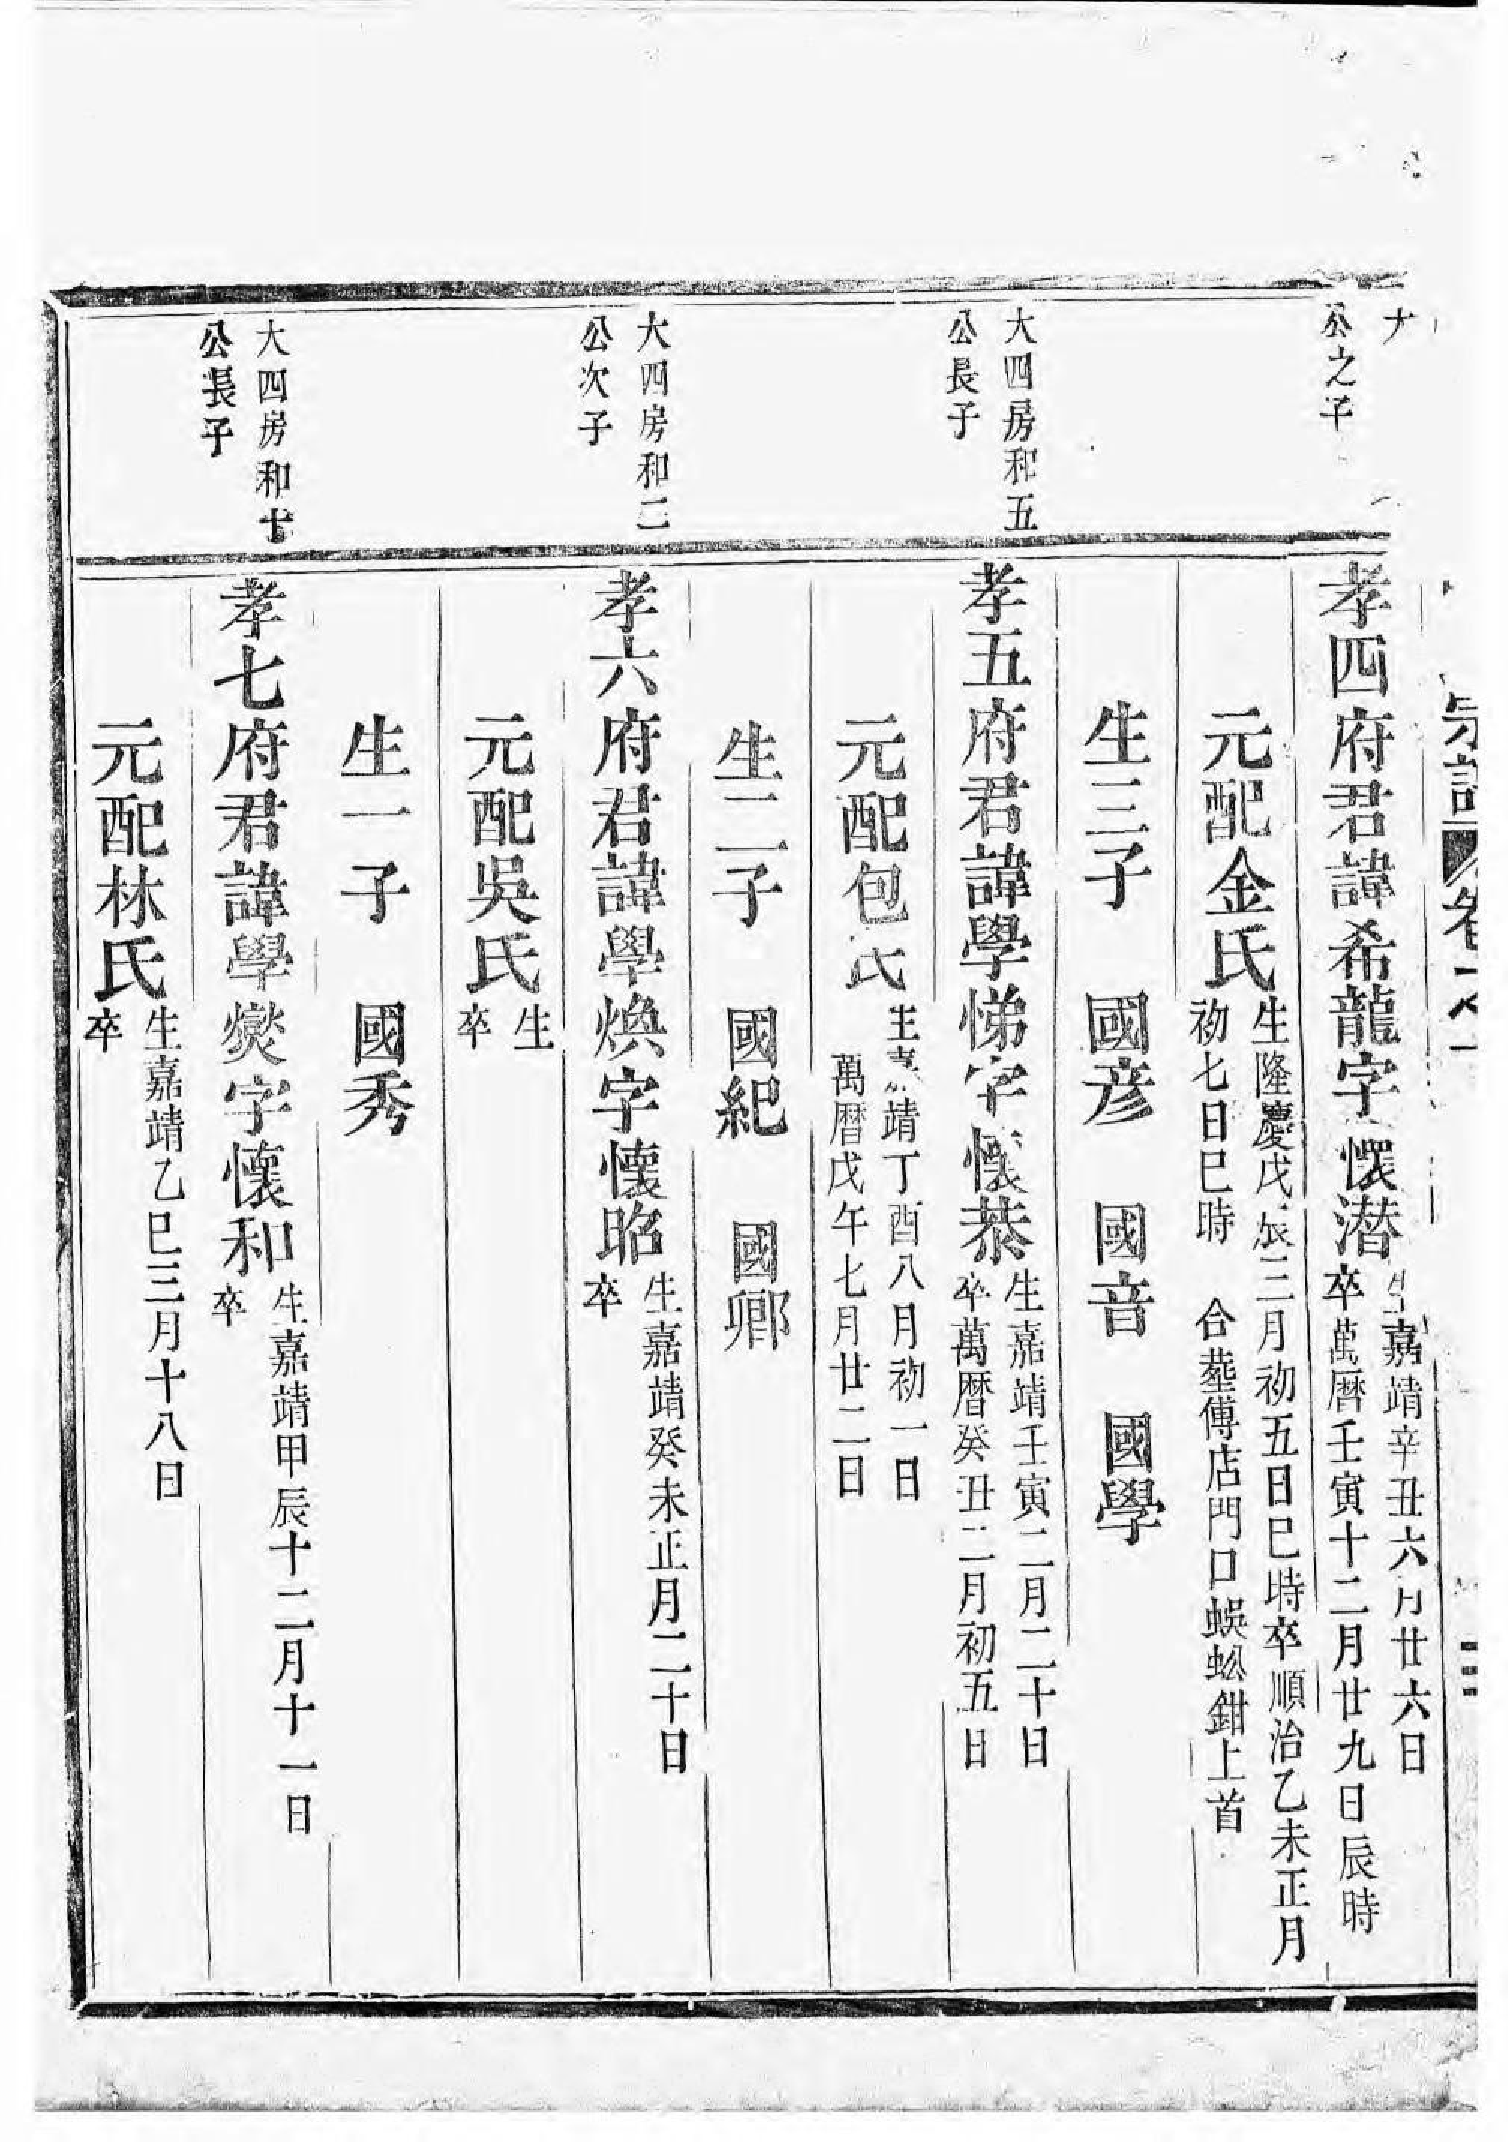 宗譜 卷之一 三
公之子
孝四府君諱希龍字懷潜
生嘉靖辛丑六月廿六日
卒萬曆壬寅十二月廿九日辰時
元配金氏
生隆慶戊辰三月初五日巳時卒順治乙未正月
初七日巳時 合塟傅店門口蜈蚣鉗上首
生三子 國彦 國音 國學
大四房和五
公長子
孝五府君諱學悌字懷恭
生嘉靖壬寅二月二十日
卒萬曆癸丑二月初五日
元配包氏
生嘉靖丁酉八月初一日
萬曆戊午七月廿二日
生二子 國紀 國卿
大四房和二
公次子
孝六府君諱學煥字懷昭
生嘉靖癸未正月二十日
卒
元配吳氏
生
卒
生一子 國秀
大四房和
公長子
孝七府君諱學爕字懷和
生嘉靖甲辰十二月十一日
卒
元配林氏
生嘉靖乙巳三月十八日
卒